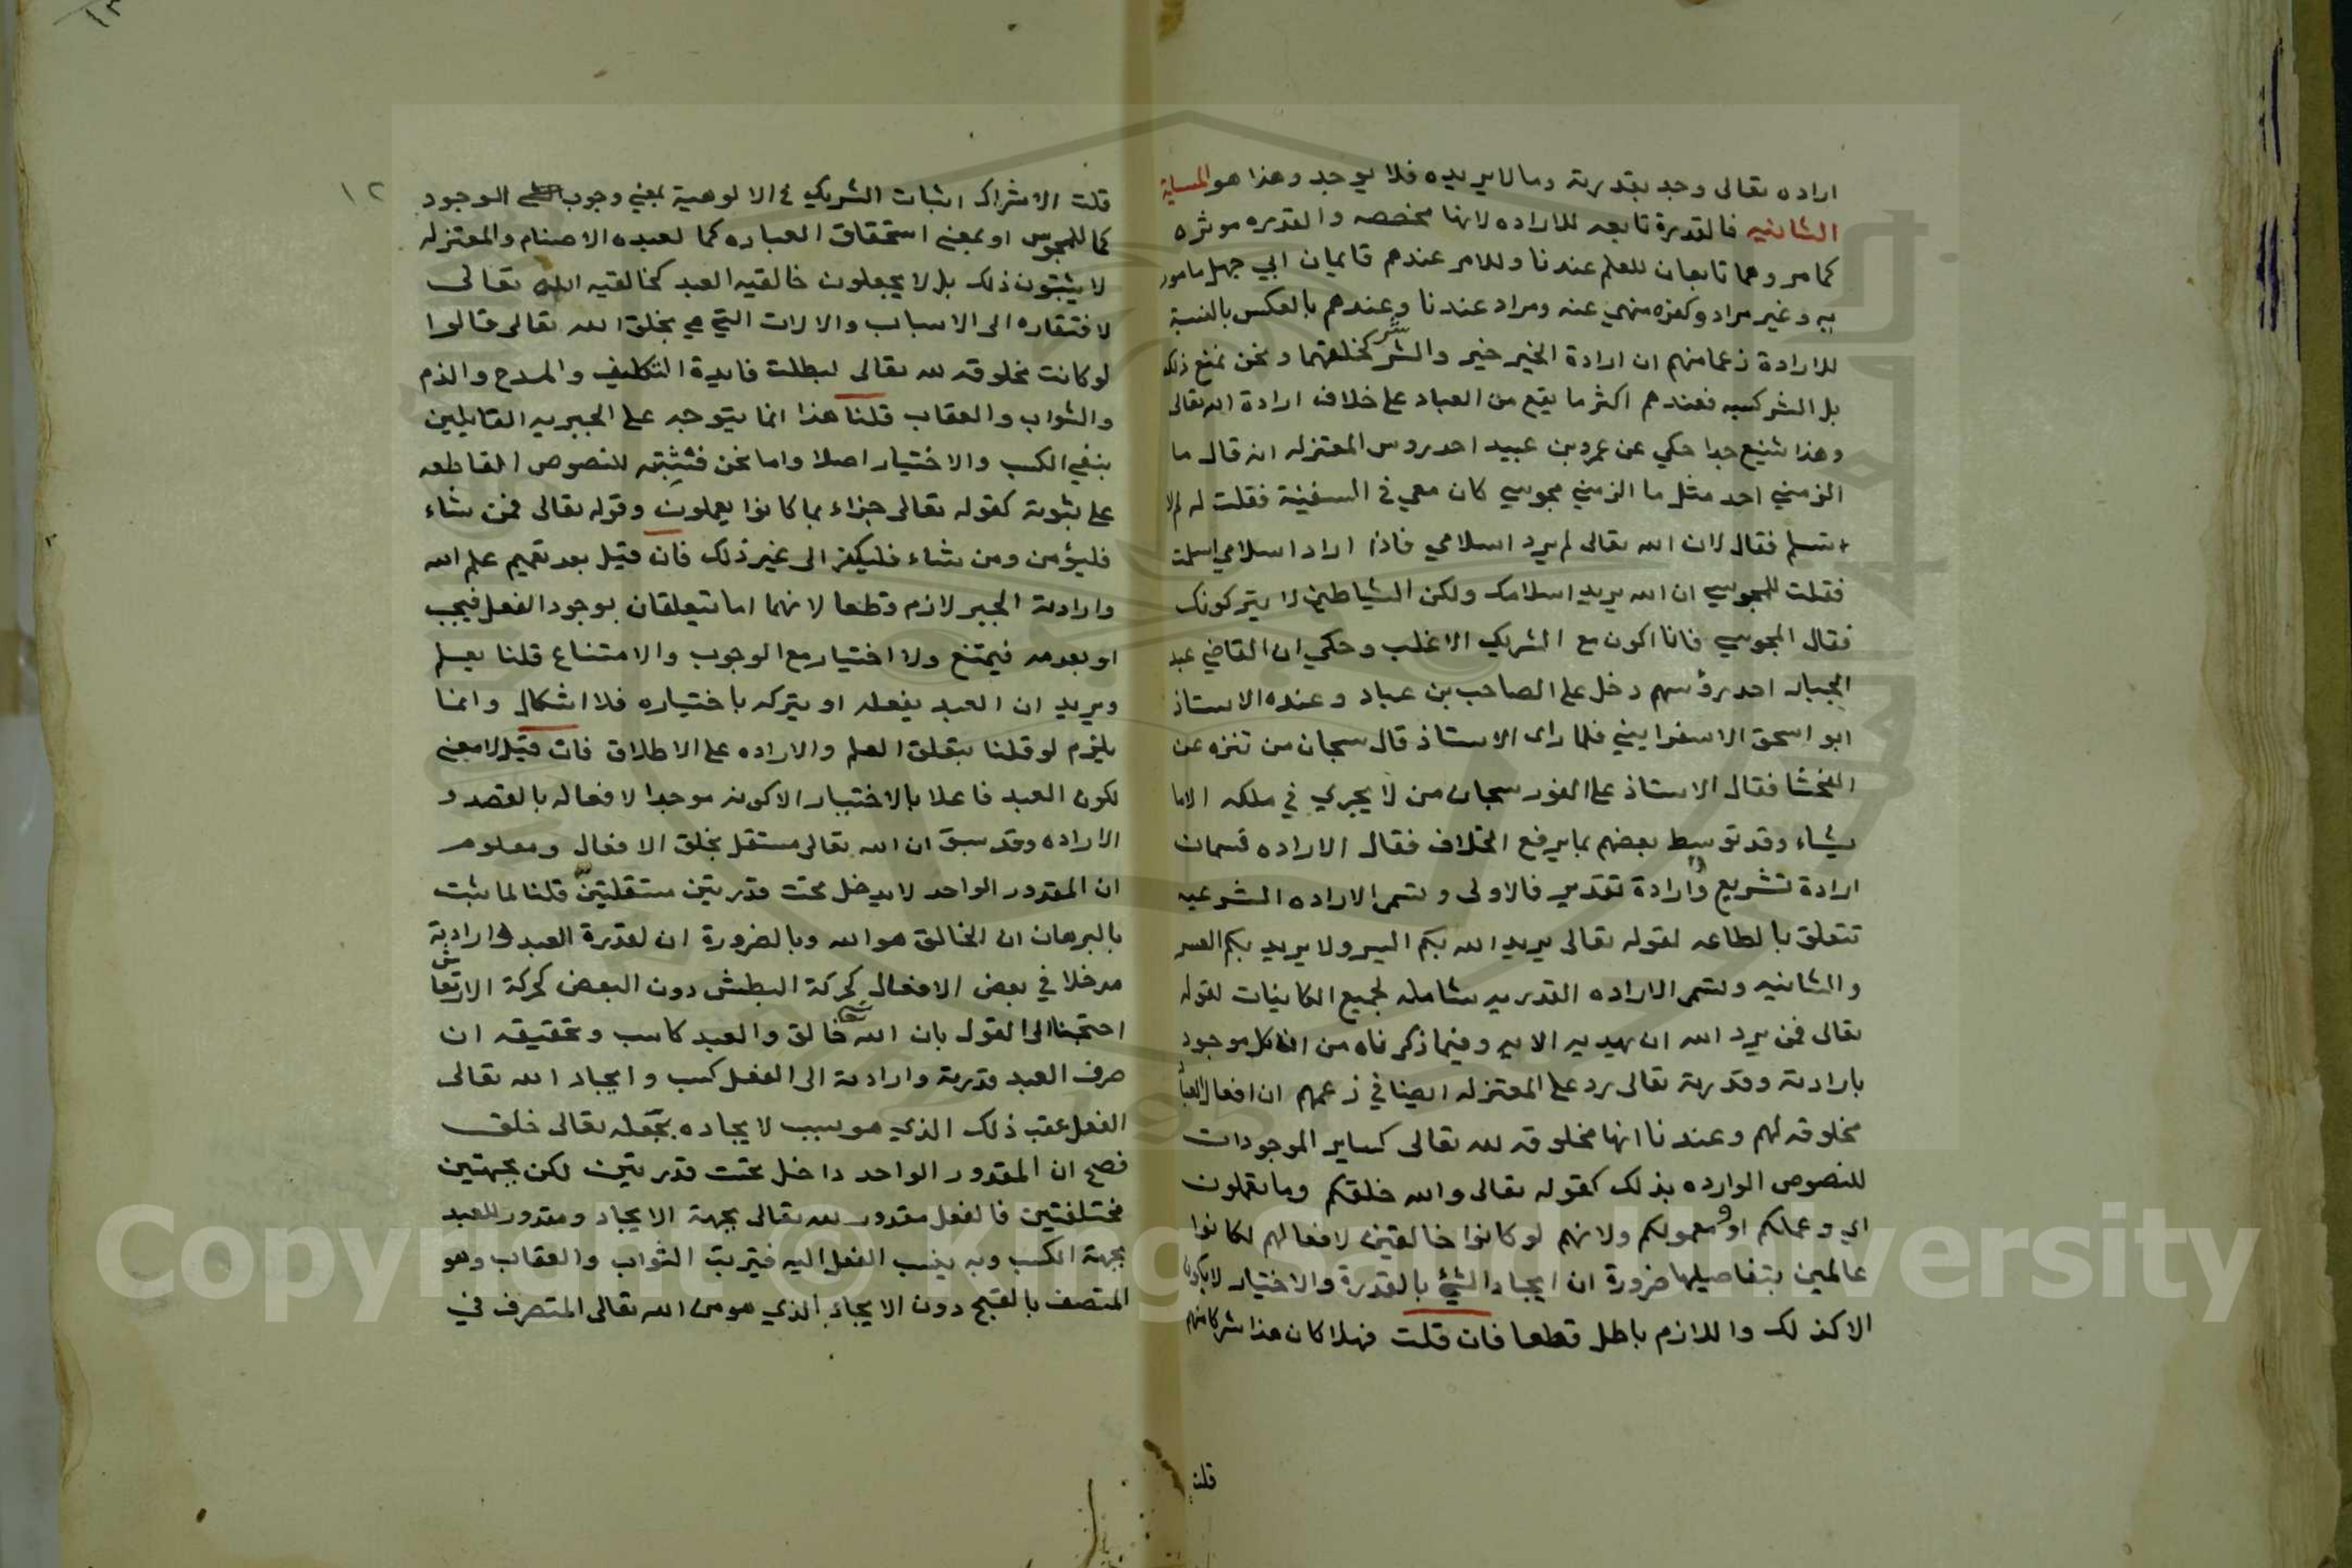 اراده تعالى وجد بقدرته ومالا يريده فلا يوجد وهذا هو المسلية
الثانيه فالقدرة تابعه للاراده لانها مخصصه والقدره موثره
كما مر وهما تابعان للعلم عندنا وللامر عندهم فايمان ابي جهل مامور
به وغير مراد وكفره منهي عنه ومراد عندنا وعندهم بالعكس بالنسبة
للارادة زعما منهم ان ارادة الخير خير والشر شر كخلقهما ونحن نمنع ذلك
بل الشر كسبه فعندهم اكثر ما يقع من العباد على خلاف ارادة الله تعالى
وهذا شنيع جدا حكي عن عمرو بن عبيد احد روس المعتزله انه قال ما
الزمني احد مثل ما الزمني مجوسي كان معي في السفينة فقلت له لم لا
تسلم فقال لان الله تعالى لم يرد اسلامي فاذا اراد اسلامي اسلمت
فقلت للمجوسي ان الله يريد اسلامك ولكن الشياطين لا يتركونك
فقال المجوسي فانا اكون مع الشريك الاغلب وحكي ان القاضي عبد
الجبار احد رؤسهم دخل على الصاحب بن عباد وعنده الاستاذ
ابو اسحق الاسفرايني فلما راى الاستاذ قال سبحان من تنزه عن
الفحشا فقال الاستاذ على الفور سبحان من لا يجري في ملكه الا ما
يشاء وقد توسط بعضهم بما يرفع الخلاف فقال الاراده قسمان
ارادة تشريع وارادة تقدير فالاولى وتسمى الاراده الشرعيه
تتعلق بالطاعه لقوله تعالى يريد الله بكم اليسر ولا يريد بكم العسر
والثانيه وتسمى الاراده القدريه شامله لجميع الكاينات لقوله
تعالى فمن يرد الله ان يهديه الايه وفيما ذكرناه من ان كل موجود
بارادته وقدرته تعالى رد على المعتزله ايضا في زعمهم ان افعال العباد
مخلوقه لهم وعندنا انها مخلوقه لله تعالى كساير الموجودات
للنصوص الوارده بذلك كقوله تعالى والله خلقكم وما تعملون
اي وعملكم او ومعمولكم ولانهم لو كانوا خالقين لافعالهم لكانوا
عالمين بتفاصيلها ضرورة ان ايجاد الشئ بالقدرة والاختيار لا يكون
الا كذلك واللازم باطل قطعا فان قلت فهلا كان هذا شركا منهم
قلت
١٢
قلت الاشراك اثبات الشريك في الالوهية بمعني وجوب الوجود
كما للمجوس او بمعنى استحقاق العباده كما لعبده الاصنام والمعتزله
لا يثبتون ذلك بل لا يجعلون خالقيه العبد كخالقيه الله تعالى
لافتقاره الى الاسباب والالات التي هي بخلق الله تعالى قالوا
لو كانت مخلوقه لله تعالى لبطلت فايدة التكليف والمدح والذم
والثواب والعقاب قلنا هذا انما يتوجه على الجبريه القايلين
بنفي الكسب والاختيار اصلا واما نحن فنثبته للنصوص القاطعه
على ثبوته كقوله تعالى جزاء بما كانوا يعملون وقوله تعالى فمن شاء
فليؤمن ومن شاء فليكفر الى غير ذلك فان قيل بعد تعميم علم الله
وارادته الجبر لازم قطعا لانهما اما يتعلقان بوجود الفعل فيجب
او بعدمه فيمتنع ولا اختيار مع الوجوب والامتناع قلنا يعلم
ويريد ان العبد يفعله او يتركه باختياره فلا اشكال وانما
يلزم لو قلنا بتعلق العلم والاراده على الاطلاق فان قيل لا معنى
لكون العبد فاعلا بالاختيار الا كونه موجدا لافعاله بالقصد و
الاراده وقد سبق ان الله تعالى مستقل بخلق الافعال ومعلوم
ان المقدور الواحد لا يدخل تحت قدرتين مستقلتين قلنا لما ثبت
بالبرهان ان الخالق هو الله وبالضرورة ان لقدرة العبد وارادته
مدخلا في بعض الافعال كحركة البطش دون البعض كحركة الارتعاش
احتجنا الى القول بان الله خالق والعبد كاسب وتحقيقه ان
صرف العبد قدرته وارادته الى الفعل كسب وايجاد الله تعالى
الفعل عقب ذلك الذي هو سبب لايجاده بجعله تعالى خلق
فصح ان المقدور الواحد داخل تحت قدرتين لكن بجهتين
مختلفتين فالفعل مقدور لله تعالى بجهة الايجاد ومقدور للعبد
بجهة الكسب وبه ينسب الفعل اليه فيترتب الثواب والعقاب وهو
المتصف بالقبح دون الايجاد الذي هو من الله تعالى المتصرف في
Copyright © King Saud University